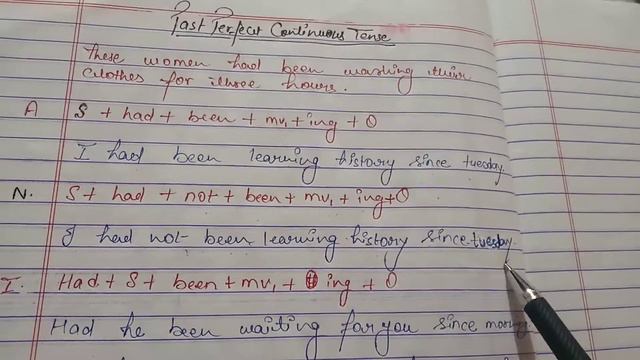 Past Perfect Continuous Tense
These women had been washing their
clothes for three hours.
A S + had + been + mv₁ + ing + O
I had been learning history since tuesday.
N. S + had + not + been + mv₁ + ing + O
I had not been learning history since tuesday.
I. Had + S + been + mv₁ + ing + O
Had he been waiting for you since